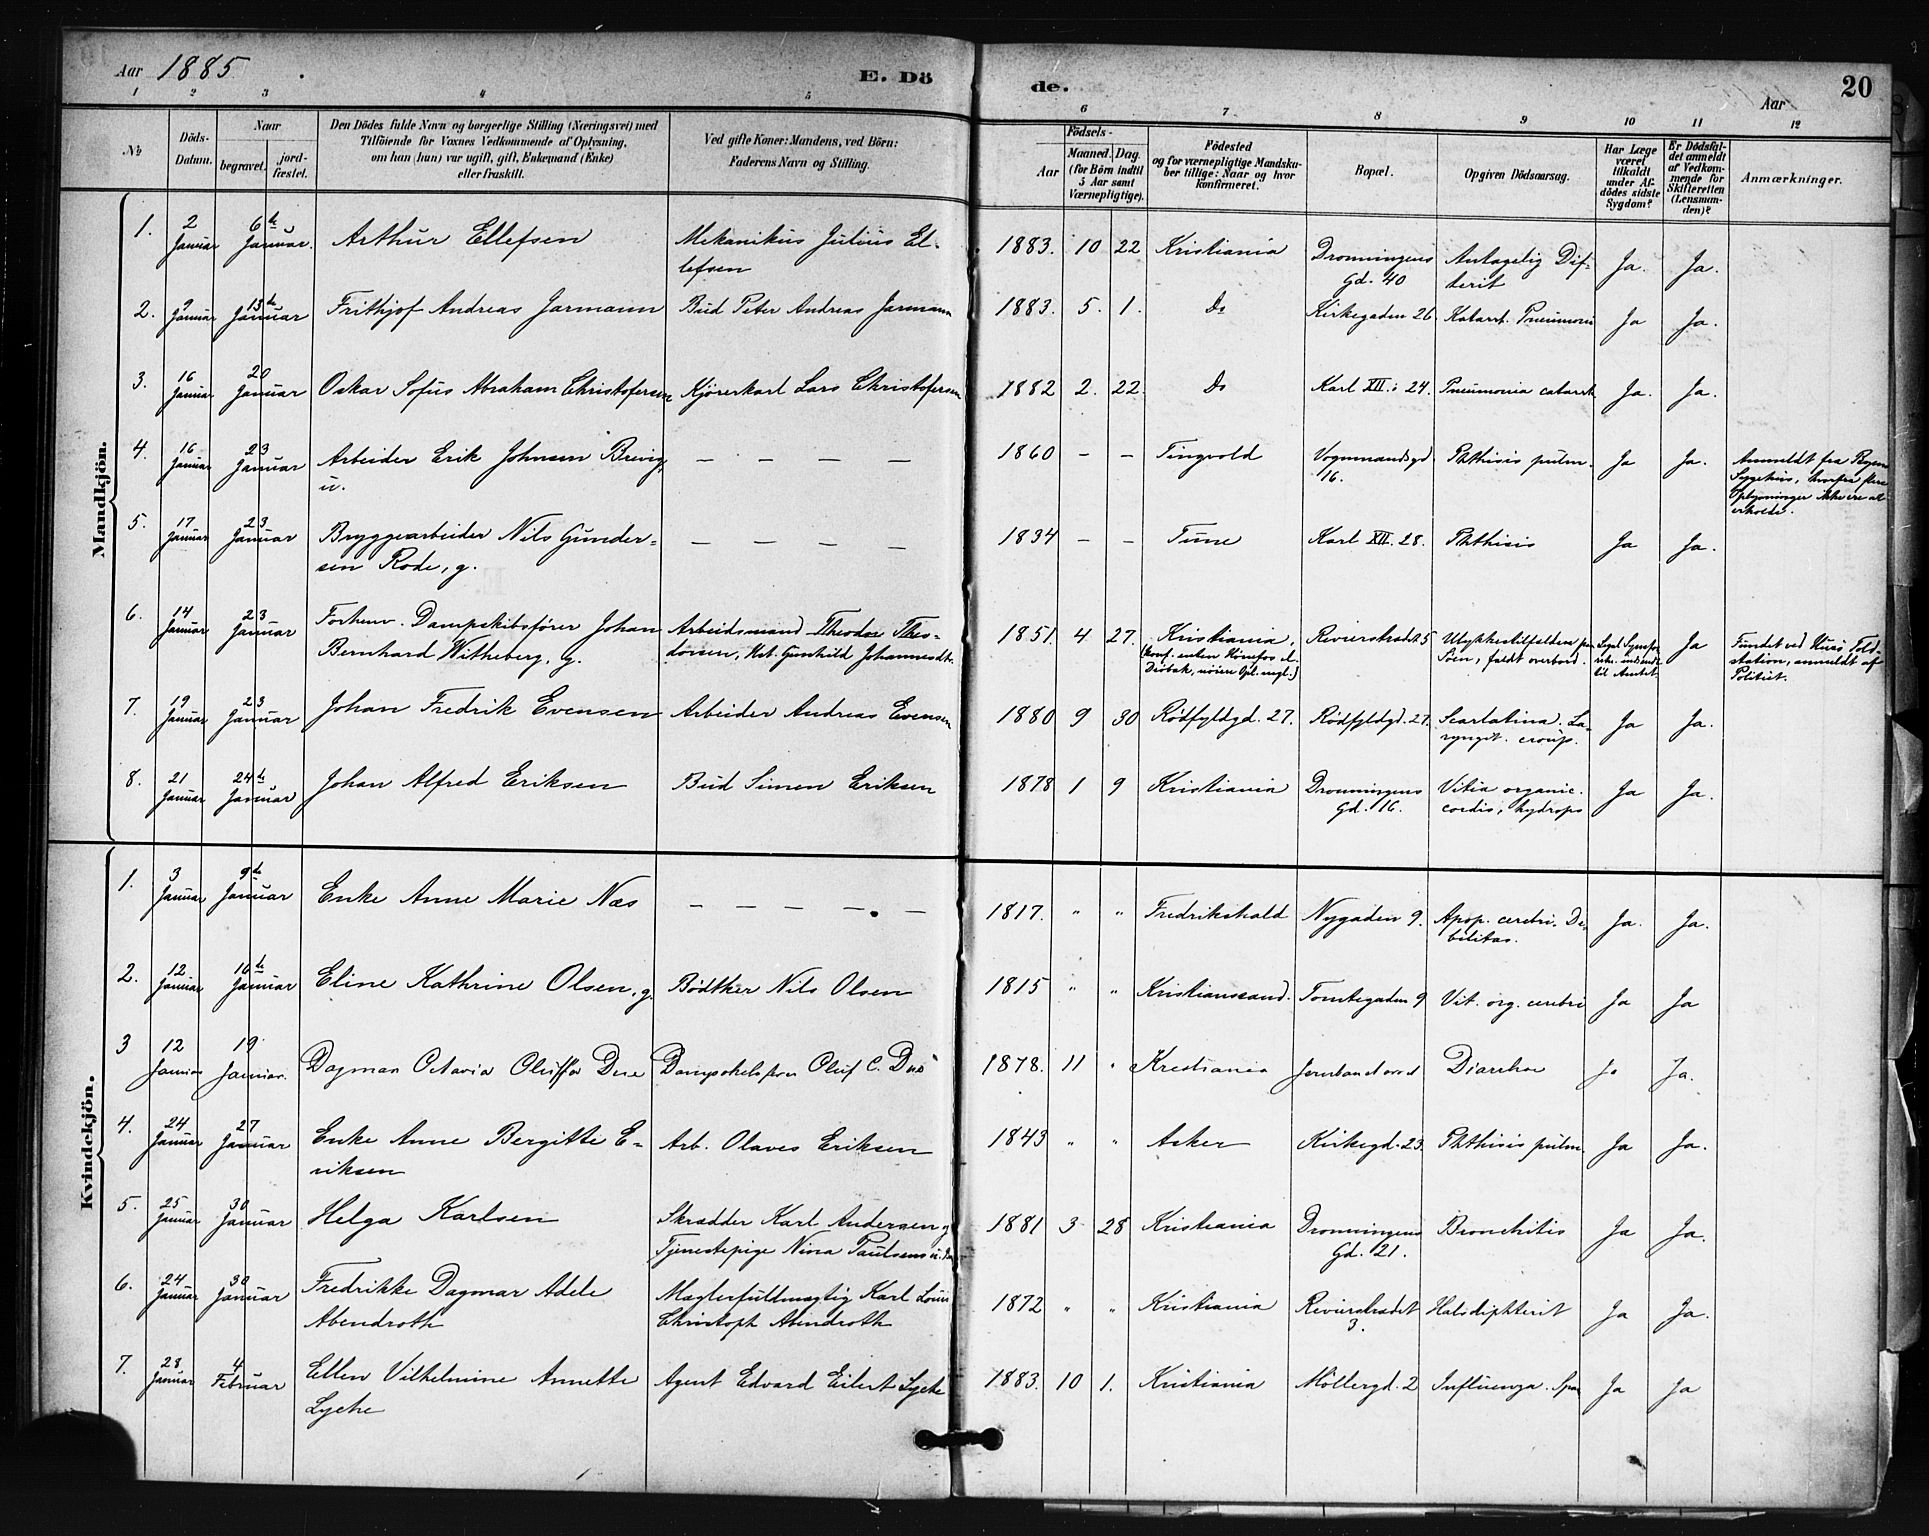 Aar 1885 E. Dö de. Aar 20
1 2 3 4 5 6 7 8 9 10 11 12
№ Döds-Datum. Naar begravet. jord-fæstet. Den Dödes fulde Navn og borgerlige Stilling (Næringsvei) med Tilföiende for Voxnes Vedkommende af Oplysning, om han (hun) var ugift, gift, Enkemand (Enke) eller fraskilt. Ved gifte Koner: Mandens, ved Börn: Faderens Navn og Stilling. Födsels- Aar Maaned. Dag. (for Börn indtil 5 Aar samt Værnepligtige). Födested og for værnepligtige Mandskaber tillige: Naar og hvor konfirmeret. Bopæl. Opgiven Dödsaarsag. Har Læge været tilkaldt under Afdödes sidste Sygdom? Er Dödsfaldet anmeldt af Vedkommende for Skifteretten (Lensmanden)? Anmærkninger.
Mandkjön.
1. 2 Januar 6te Januar. Arthur Ellefsen Mekanikus Julius El-
lefsen 1883. 10 22 Kristiania Dronningens Gd. 40 Antagelig Dif-
terit Ja. Ja.
2. 9 Januar 13te Januar Frithjof Andreas Jarmann Bud Peter Andreas Jarmann 1883. 5. 1. Do Kirkegaden 26. Katarrh. Pneumoni Ja Ja.
3. 16 Januar 20 Januar Oskar Sofus Abraham Christofersen Kjörerkarl Lars Christofersen 1882 2. 22. Do Karl XII. 24. Pneumonia catarrh Ja. Ja.
4. 16 Januar 23 Januar Arbeider Erik Johnsen Brevig,
u. — — — — 1860 — — Tingvold Vognmandsgd 16. Phthisis pulm. Ja Ja. Anmeldt fra Rigens
Sygehus, hvorfra flere
Oplysninger ikke ere at
erholde.
5. 17 Januar 23 Januar Bryggearbeider Nils Gunder-
sen Rode, g. — — — — 1834 — — Tune Karl XII. 28. Phthisis Ja Ja.
6. 14 Januar 23 Januar Forhenv. Dampskibsförer Johan
Bernhard Witheberg, g. Arbeidsmand Theodor Theo-
dorsen, Gunhild Johannesdt. 1851. 4 27. Kristiania,
(konf. enten Hönefos el.
Dröbak, nöiere Opl. mgl.) Revierstrædet 5 Ulykkestilfælde paa
Söen, faldt overbord. til Amtet. Ja Fundet ved Told-
station, anmeldt af
Politiet.
7. 19 Januar 23 Januar Johan Fredrik Evensen Arbeider Andreas Evensen 1880 9 30 Rödfyldgd. 27. Rödfyldgd. 27. Scarlatina. La-
ryngit. croup. Ja Ja.
8. 21 Januar 24te Januar Johan Alfred Eriksen Bud Simen Eriksen 1878 1 9 Kristiania Dronningens Gd. 16. Vitia organic.
cordis, hydrops Ja Ja.
Kvindekjön.
1. 3 Januar 9te Januar Enke Anne Marie Næs — — — — — 1817. " " Fredrikshald Nygaden 9. Apop. cerebri. De-
bilitas. Ja. Ja.
2. 12 Januar 16te Januar Eline Kathrine Olsen, g. Bödtker Nils Olsen 1815 " " Kristianssand. Tomtegaden 9 Vit. org. cerebri Ja Ja
3 12 Januar 19 Januar. Dagmar Octavia Oluffa Due Oluf C. Due 1878. 11 " Kristiania Diarrhoe Ja Ja.
4. 24 Januar 27 Januar Enke Anne Bergitte E-
riksen Arb. Olaves Eriksen 1843 " " Asker Kirkegd. 23. Phthisis pulm. Ja Ja.
5. 25 Januar 30 Januar Helga Karlsen Skrædder Karl Andersen g
Tjenestepige Nina Paulsen 1881 3 28 Kristiania Dronningens Gd. 21. Bronchitis Ja Ja.
6. 24 Januar 30 Januar Fredrikke Dagmar Adele
Abendroth Mæglerfuldmægtig Karl Louis
Christoph Abendroth 1872 " " Kristiania Revierstrædet 3. Halsdiphterit Ja Ja.
7. 28 Januar 4 Februar Ellen Vilhelmine Annette
Lyche Agent Edvard Eilert Lyche 1883. 10 1. Kristiania Möllergd. 2 Influenza. Ja Ja